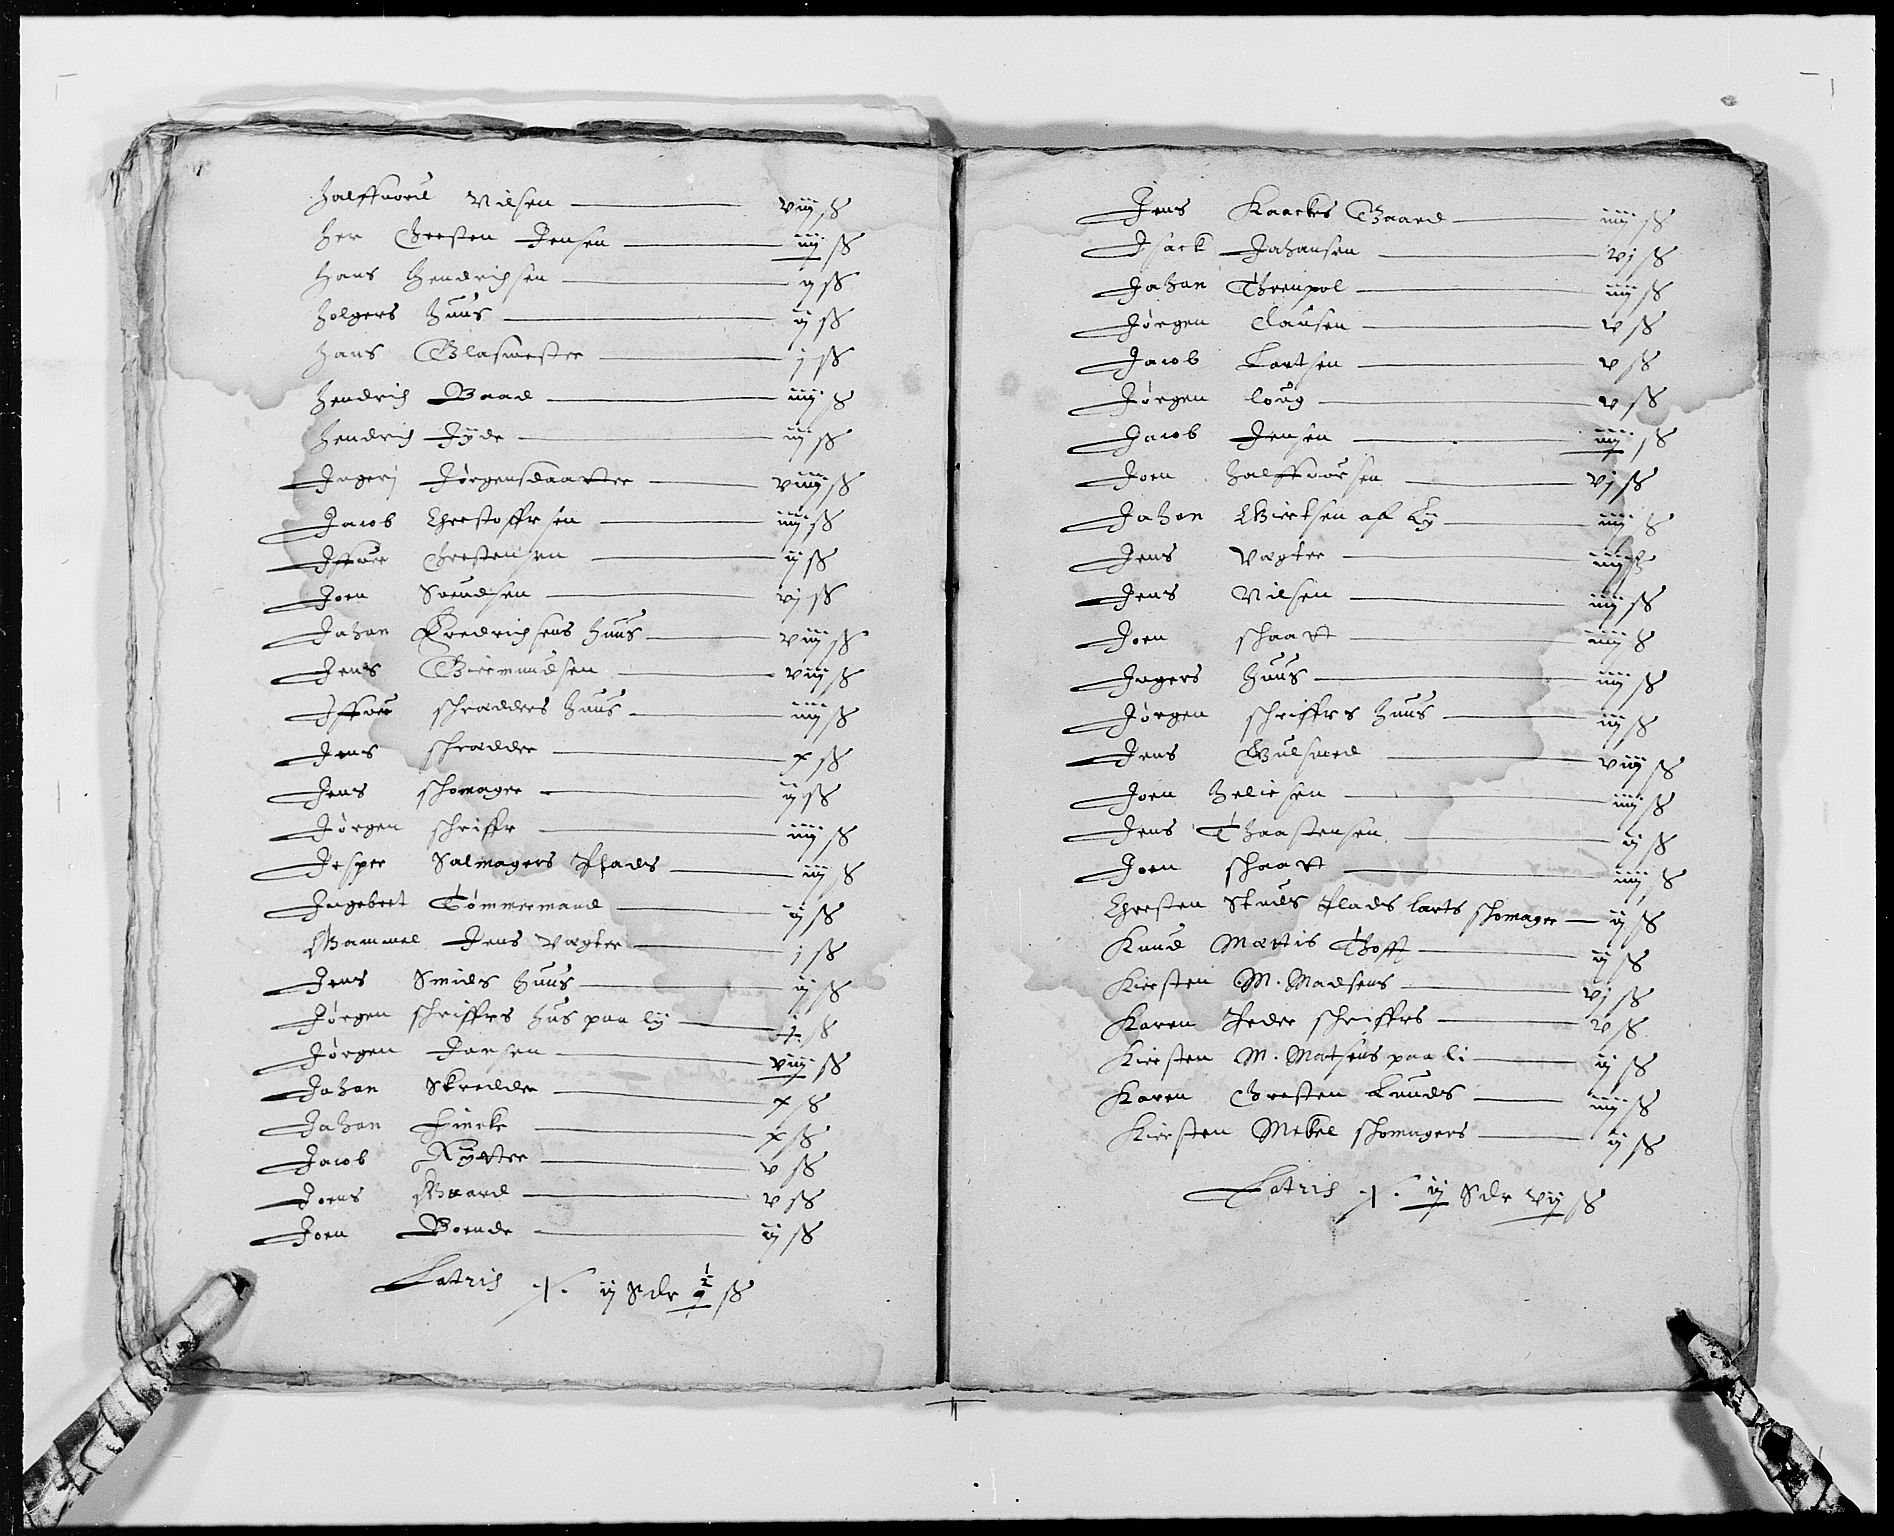 Halffuord Nilsen — viij ß
Her Christen Jensen — iiij ß
Hans Hendrichsen — ij ß
Holgers Huus — ij ß
Hans Glasmester — j ß
Hendrich Baad — iiij ß
Hendrich Jyde — iij ß
Ingerj Jørgensdaatter — viiij ß
Jacob Christoffersen — iiij ß
Iffuer Christensen — ij ß
Joen Suendsen — vj ß
Johan Fredrichsens Huus — viij ß
Jens Giermundsen — viij ß
Iffuer schredders Huus — iiij ß
Jens schredder — x ß
Jens schomager — ij ß
Jørgen schriffr — iiij ß
Jesper Salmagers Plads — iij ß
Ingebret Tømmermand — ij ß
Gammel Jens Vegter — j ß
Jens Smids Huus — ij ß
Jørgen schriffrs Hus paa lij — ß
Jørgen Jansen — viij ß
Johan Skredder — x ß
Johan Fincke — x ß
Jacob Rytter — v ß
Joens Gaard — v ß
Joen Bonde — ij ß
Latris ij Sdr ½ ß
Jens Kaackes Gaard — iiij ß
Isack Johansen — vj ß
Johan — iiij ß
Jørgen Clausen — v ß
Jacob Lartsen — v ß
Jørgen loug — v ß
Jacob Jensen — iiij ß
Joen Halffuorsen — vj ß
Johan af Ly — iiij ß
Jens Vegter — iiij ß
Jens Nilsen — iiij ß
Joen schaart — iiij ß
Ingers Huus — iiij ß
Jørgen schriffrs Huus — iij ß
Jens Gulsmed — viij ß
Joen Heliesen — iiij ß
Jens Thaastensen — ij ß
Joen schaart — iiij ß
Christen Skuds Plads larts schomager — ij ß
Knud Mattis Thofft — ij ß
Kiersten M. Madsens — vj ß
Karen Peder schriffrs — v ß
Kiersten M. Matsens paa li — ij ß
Karen Christen Lunds — iiij ß
Kiersten Mekel schomagers — ij ß
Latris ij Sdr vij ß